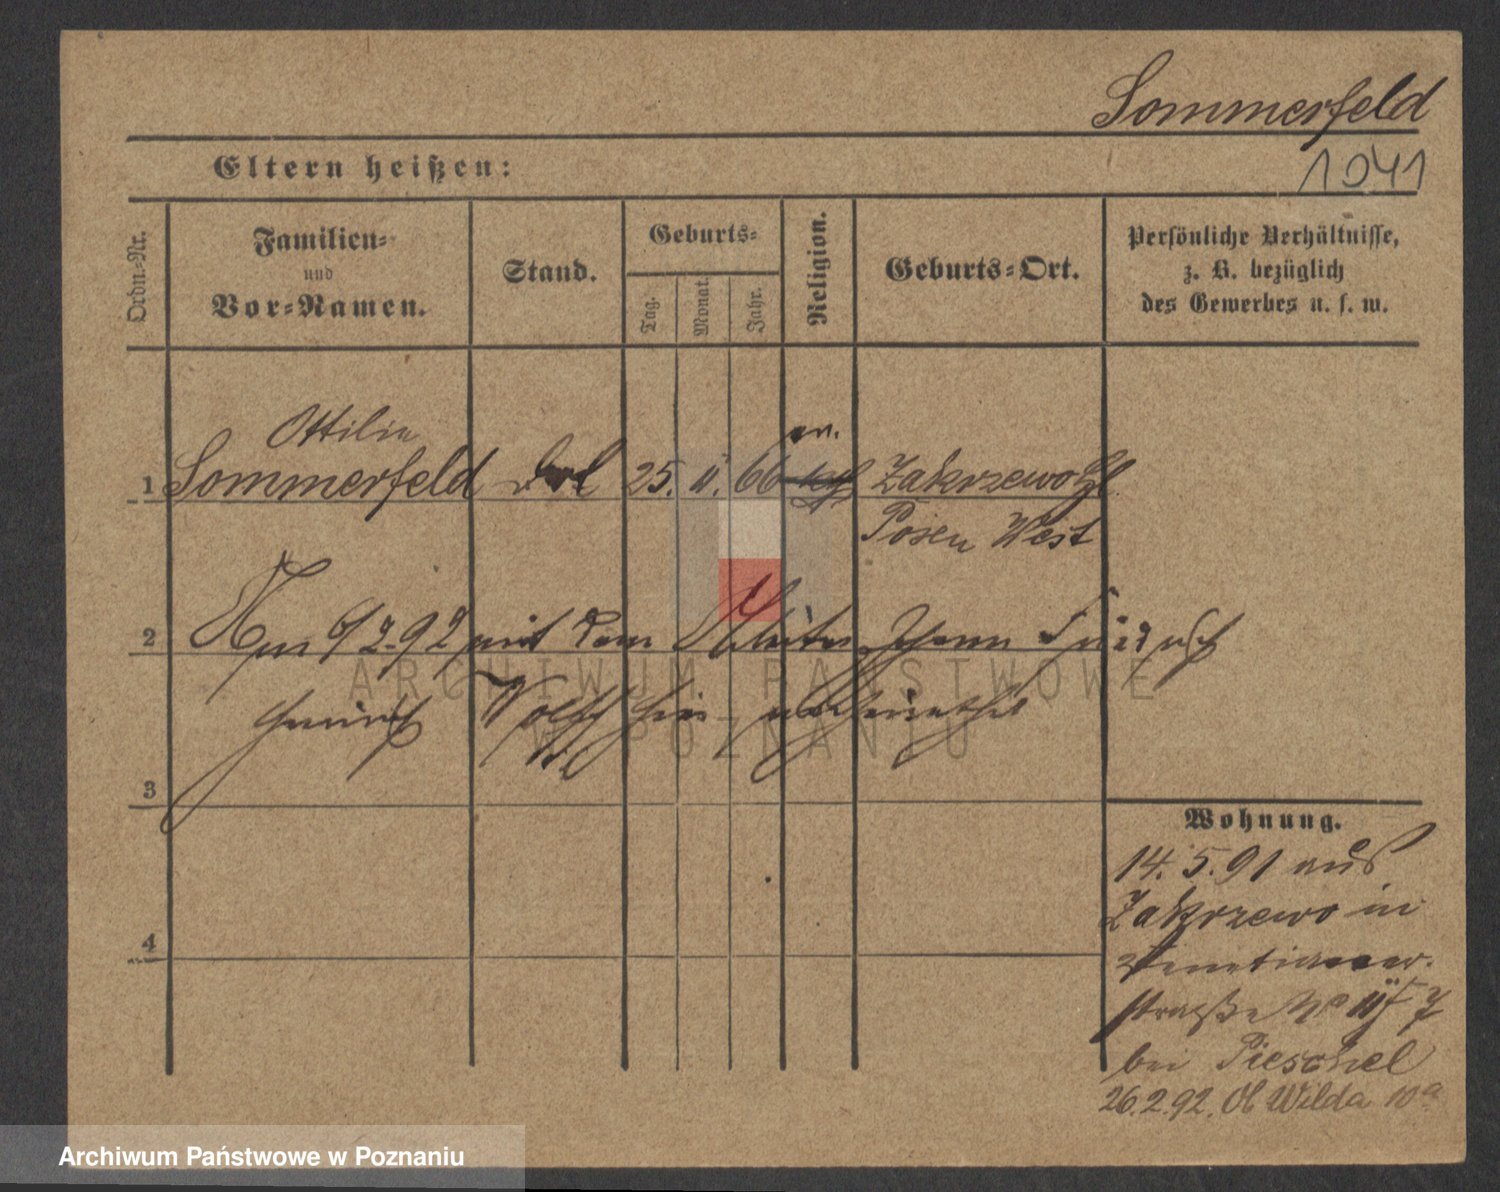 Sommerfeld
1041
Eltern heißen:
Ordn.-Nr.
Familien-
und
Vor-Namen.
Stand.
Geburts-
Tag.
Monat.
Jahr.
Religion.
Geburts-Ort.
Persönliche Verhältnisse,
z. B. bezüglich
des Gewerbes u. s. w.
Ottilie
ev.
1 Sommerfeld 25. 66 Zakrzewo
Posen West
2 Am 6/2.92 mit dem Johann
Wolff hier
3
ARCHIWUM PAŃSTWOWE
W POZNANIU
Wohnung.
14.5.91 aus
Zakrzewo in
straße No
bei Pieschel
26.2.92. Ob Wilda 10a
4
Archiwum Państwowe w Poznaniu